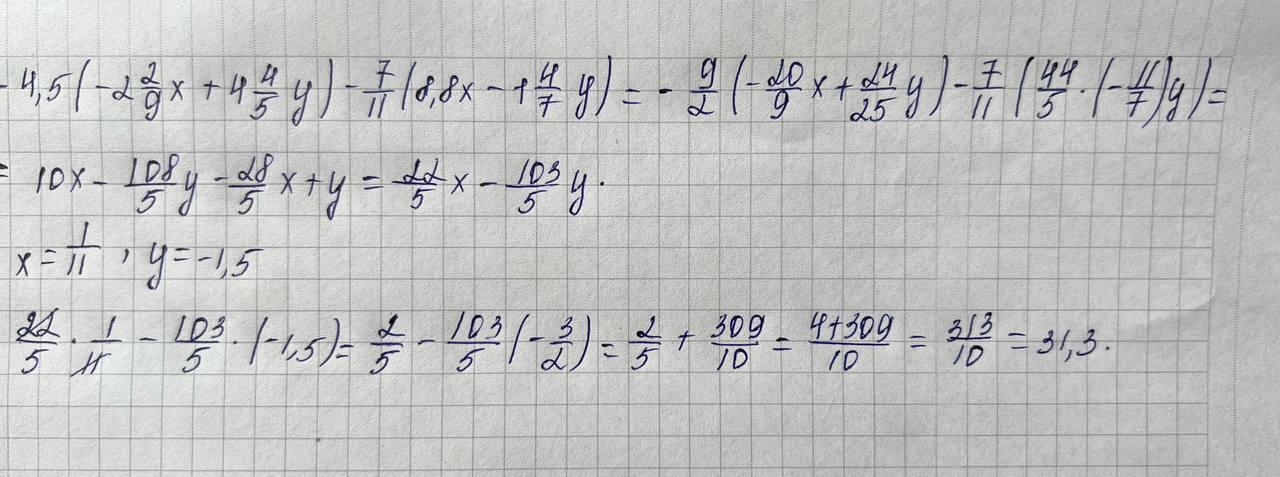 - 4,5(-2 2/9 x + 4 4/5 y) - 7/11 (8,8x - 1 4/7 y) = - 9/2 (-20/9 x + 24/25 y) - 7/11 (44/5 · (-11/7)y) =
= 10x - 108/5 y - 28/5 x + y = 22/5 x - 103/5 y.
x = 1/11 , y = -1,5
22/5 · 1/11 - 103/5 · (-1,5) = 2/5 - 103/5 (-3/2) = 2/5 + 309/10 = (4+309)/10 = 313/10 = 31,3.